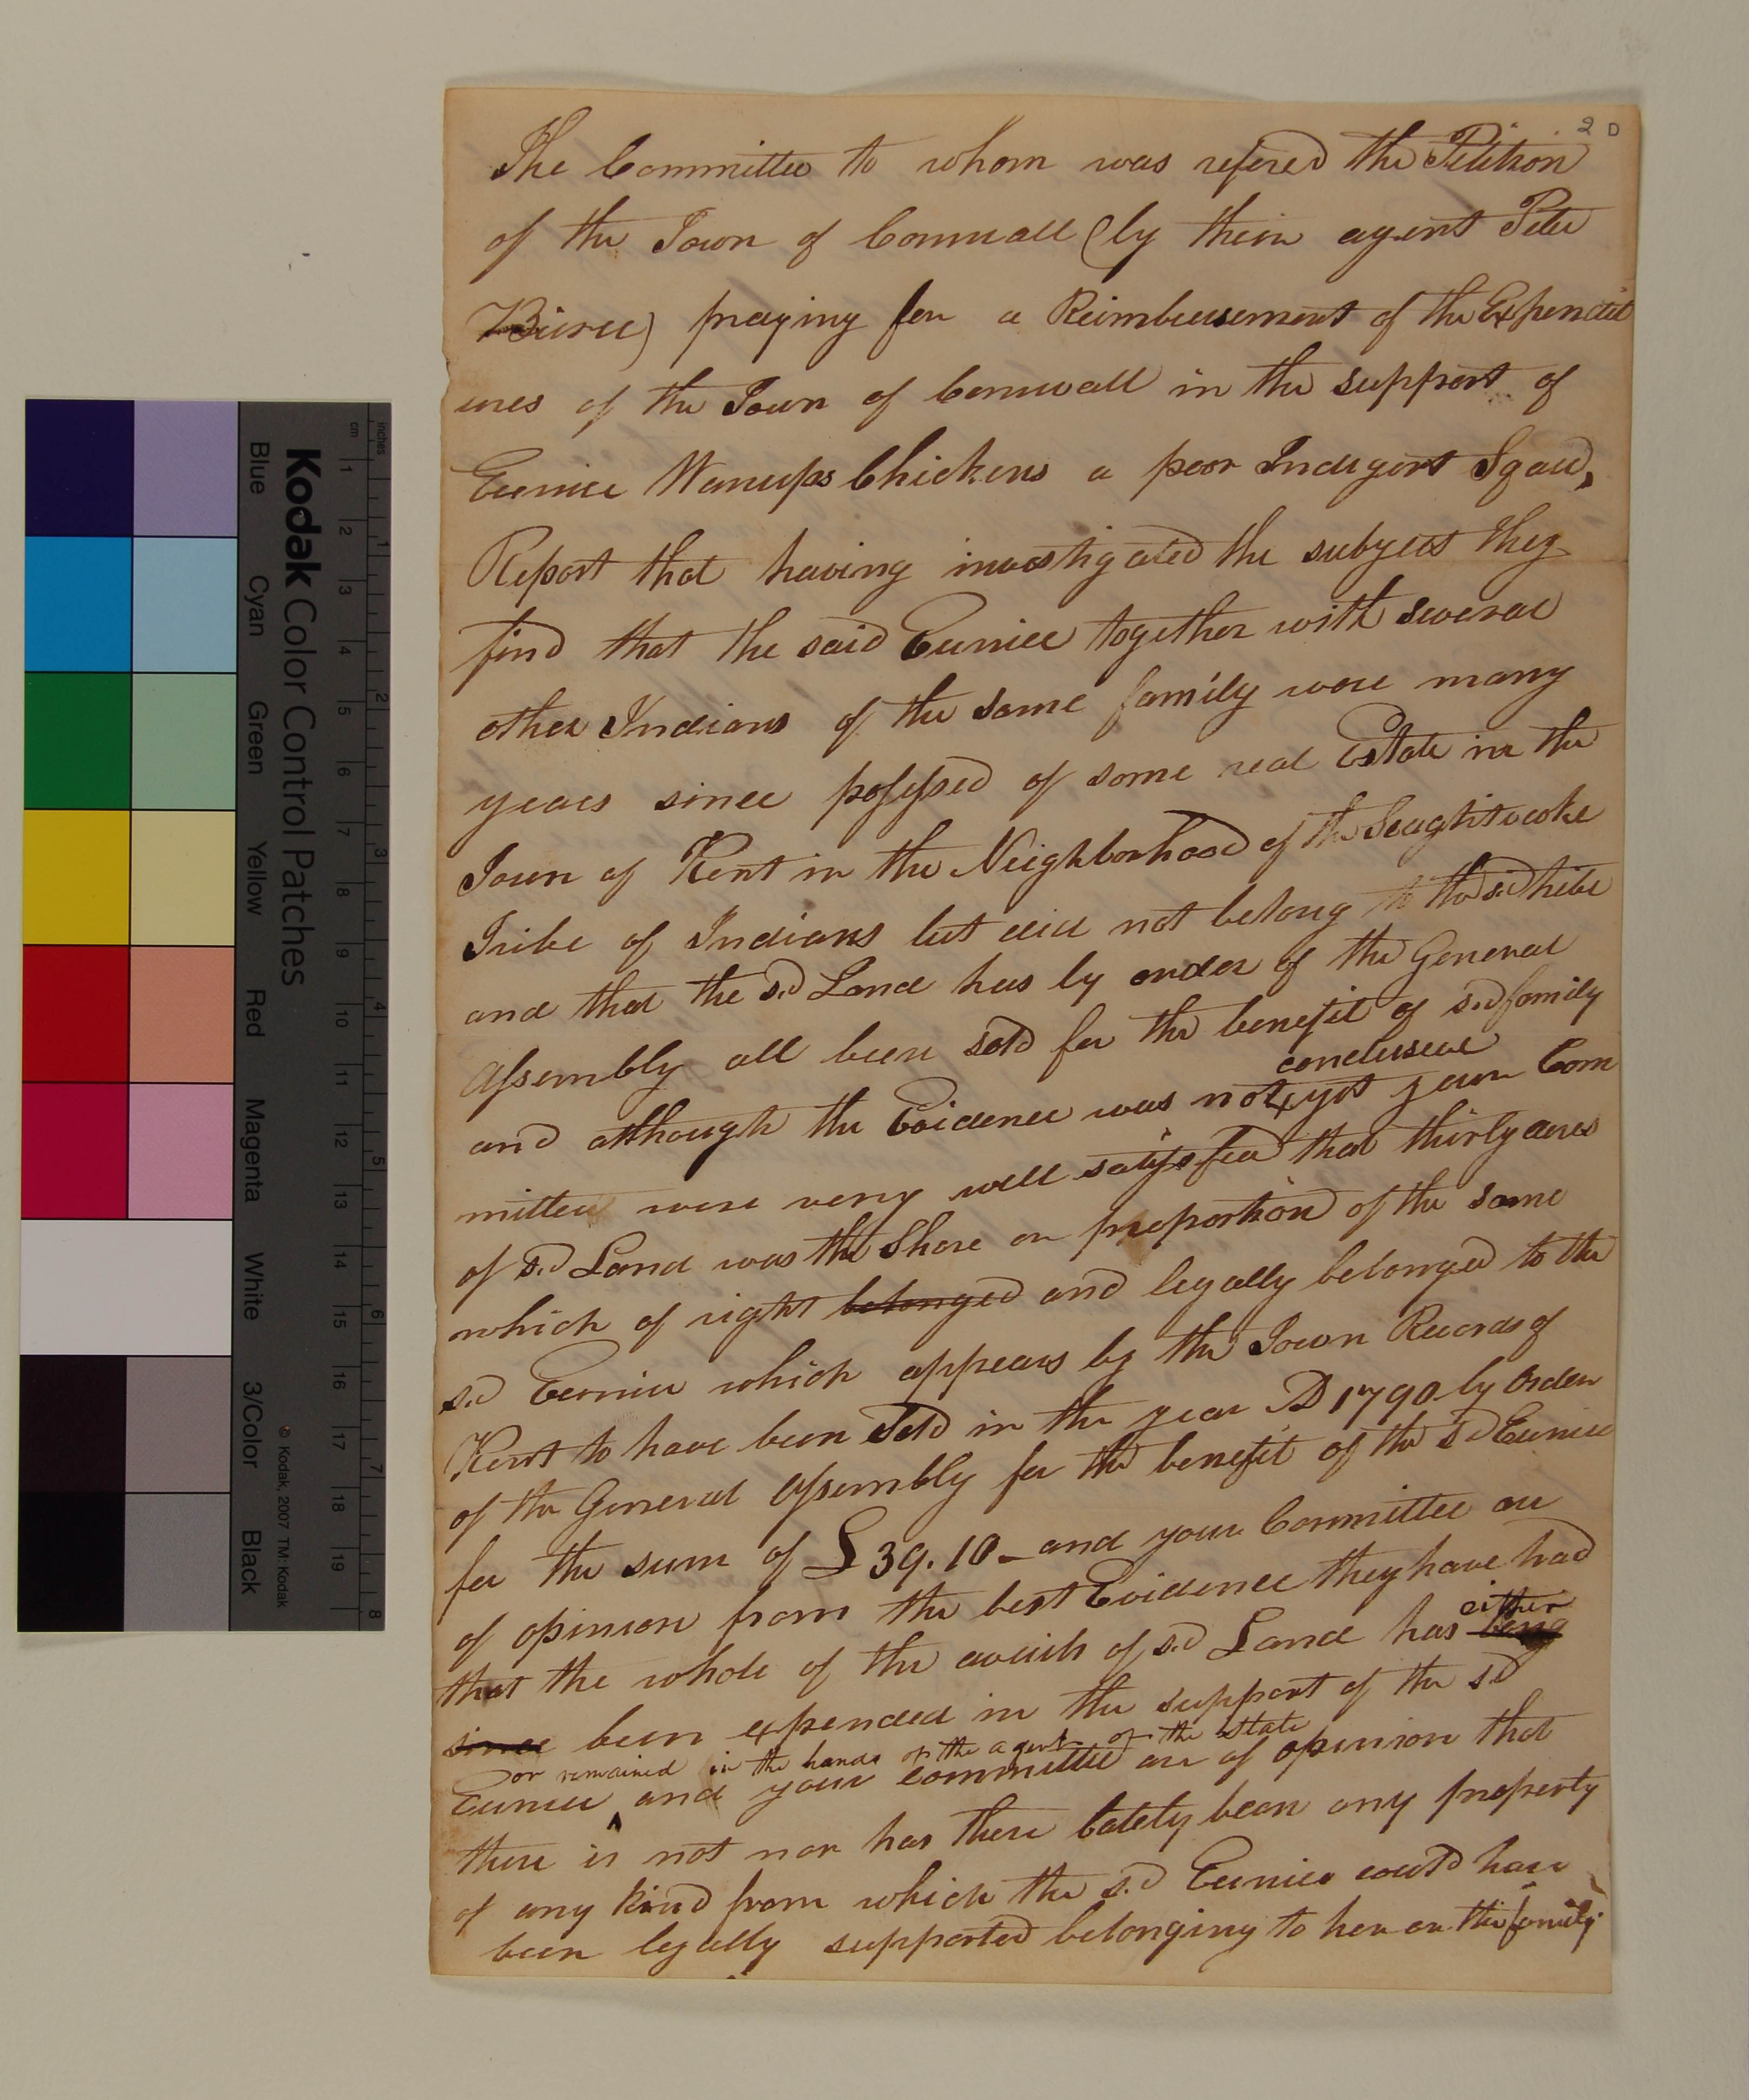 2 D
The Committee to whom was refered the Petition
of the Town of Cornwall (by their agent Peter
Bierce) praying for a Reimbursement of the Expendit
ures of the Town of Cornwall in the support of
Eunice Wanups Chickens a poor Indigent Sqaw,
Report that having investigated the subject they
find that the said Eunice together with several
other Indians of the same family were many
years since possessed of some real Estate in the
Town of Kent in the Neighborhood of the Scaghticoke
Tribe of Indians but did not belong to the sd tribe
and that the sd Land has by order of the General
Assembly all been sold for the benefit of sd family
conclusive
and although the Evidence was not yet your Com
mittee were very well satisfied that thirty acres
of sd Land was the Share or proportion of the same
which of right belonged and legally belonged to the
sd Eunice which appears by the Town Records of
Kent to have been Sold in the year AD 1790 by Order
of the General Assembly for the benefit of the sd Eunice
for the sum of £39.10 - and your Committee are
of opinion from the best Evidence they have had
either
that the whole of the avails of sd Land has being
since been expended in the support of the sd
or remained in the hands of the agent of the State
Eunice and your committee are of opinion that
there is not nor has there lately been any property
of any kind from which the sd Eunice could have
been legally supported belonging to her or the family
Kodak Color Control Patches
© Kodak, 2007 TM: Kodak
Blue Cyan Green Yellow Red Magenta White 3/Color Black
inches 1 2 3 4 5 6 7 8
cm 1 2 3 4 5 6 7 8 9 10 11 12 13 14 15 16 17 18 19